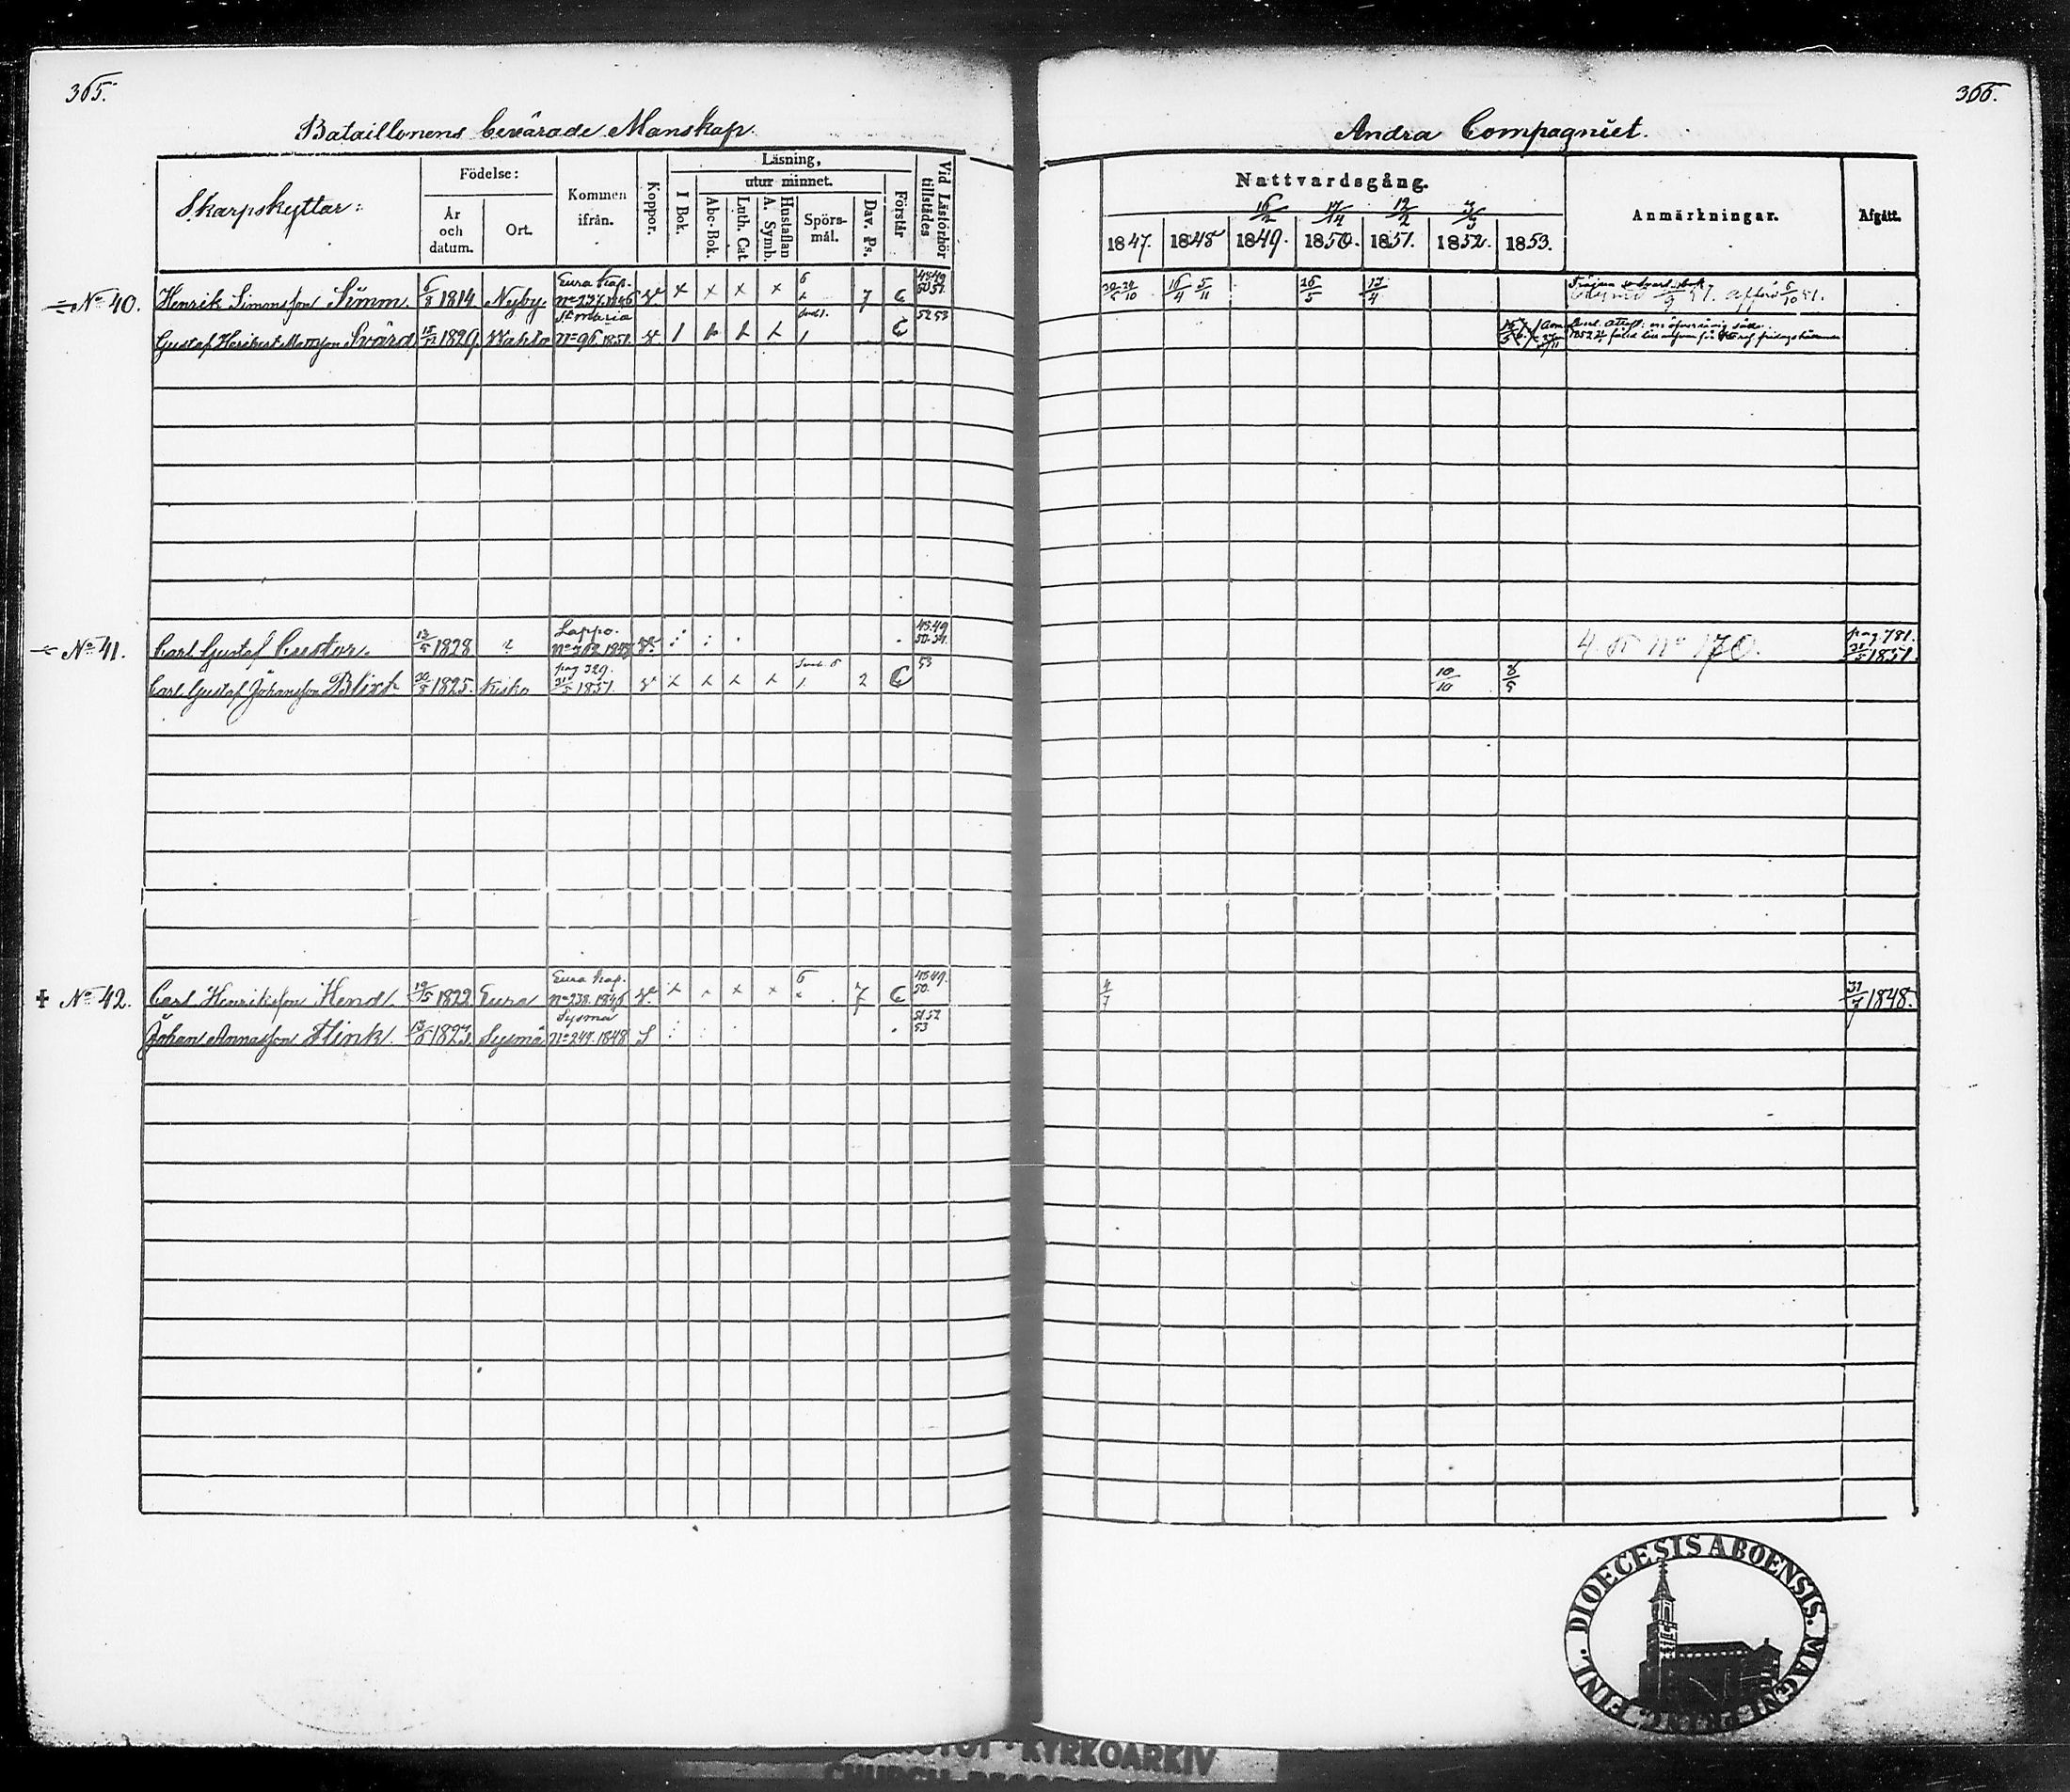 365.
Bataillonens bevärade Manskap.
Skarpskyttar:
Födelse:
År och datum.
Ort.
Kommen ifrån.
Koppor.
Läsning,
utur minnet.
I Bok.
Abc-Bok.
Luth. Cat.
Hustaflan A. Symb.
Spörs-mål.
Dav. Ps.
Förstår
Vid Läsförhör tillstädes
No 40. Henrik Simonsson Simm. 6/8 1814 Nyby Eura Kap. No 237. 1846 v. x x x x 6 7 C 48.49 50.51.
Gustaf Heribert Mattsson Svärd 15/12 1829. Wahto St Maria No 96 1851. v. 52 53
No 41. Carl Gustaf Custor. 13/5 1828 Lappo. 48.49 50.51.
Carl Gustaf Johansson Blixt 20/8 1825. Kisko pag 329. 31/5 1851. 2 C 53
No 42. Carl Henriksson Hend 19/5 1822 Eura Eura Kap. No 238. 1846 v. 6 7 C 48.49. 50.
Johan Annasson Flink. Sysmä Sysmä No 247. 1848 S 51 52 53
366.
Andra Compagniet.
Nattvardsgång.
16/2 12/2
1847. 1848 1849. 1850. 1851. 1852. 1853.
Anmärkningar.
Afgått.
16/4 5/11 26/5 13/4
4. No 170. pag. 781. 31/5 1851.
10/10 8/5
4/7 31/7 1848.
FINL. DIOECESIS ABOENSIS. MAGNI PRINC.
KYRKOARKIV